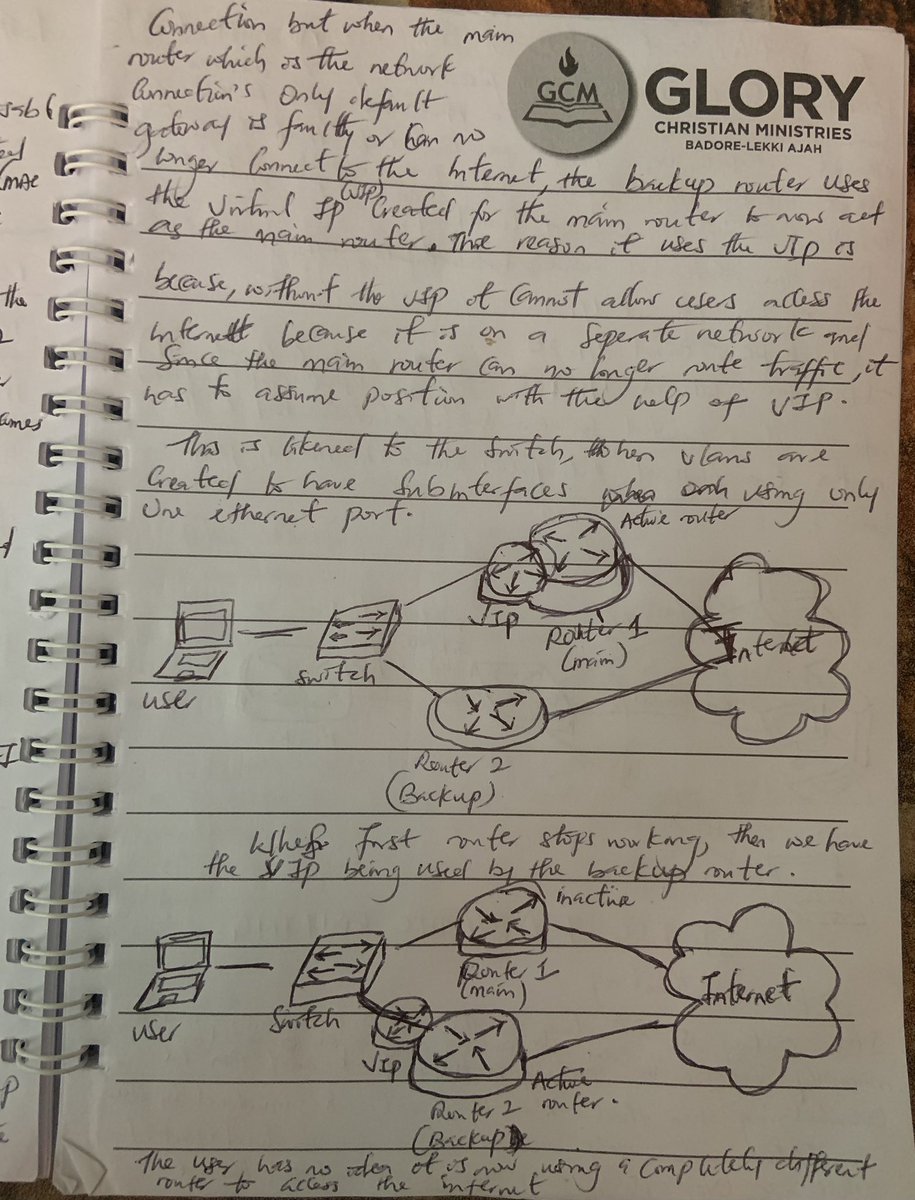 Connection but when the main
router which is the network
Connection's only default
gateway is faulty or can no
longer connect to the Internet, the backup router uses
the Virtual IP (VIP) created for the main router to now act
as the main router. The reason it uses the VIP is
because, without the VIP it cannot allow users access the
internet because it is on a seperate network and
Since the main router can no longer route traffic, it
has to assume position with the help of VIP.
This is likened to the switch, when vlans are
created to have subinterfaces using only
one ethernet port.
GCM
GLORY
CHRISTIAN MINISTRIES
BADORE-LEKKI AJAH
Active router
VIP
Router 1
(main)
Internet
user
switch
Router 2
(Backup)
When first router stops working, then we have
the VIP being used by the backup router.
inactive
Router 1
(main)
Internet
user
Switch
VIP
Active
router.
Router 2
(Backup)
The user has no idea it is now using a completely different
router to access the internet